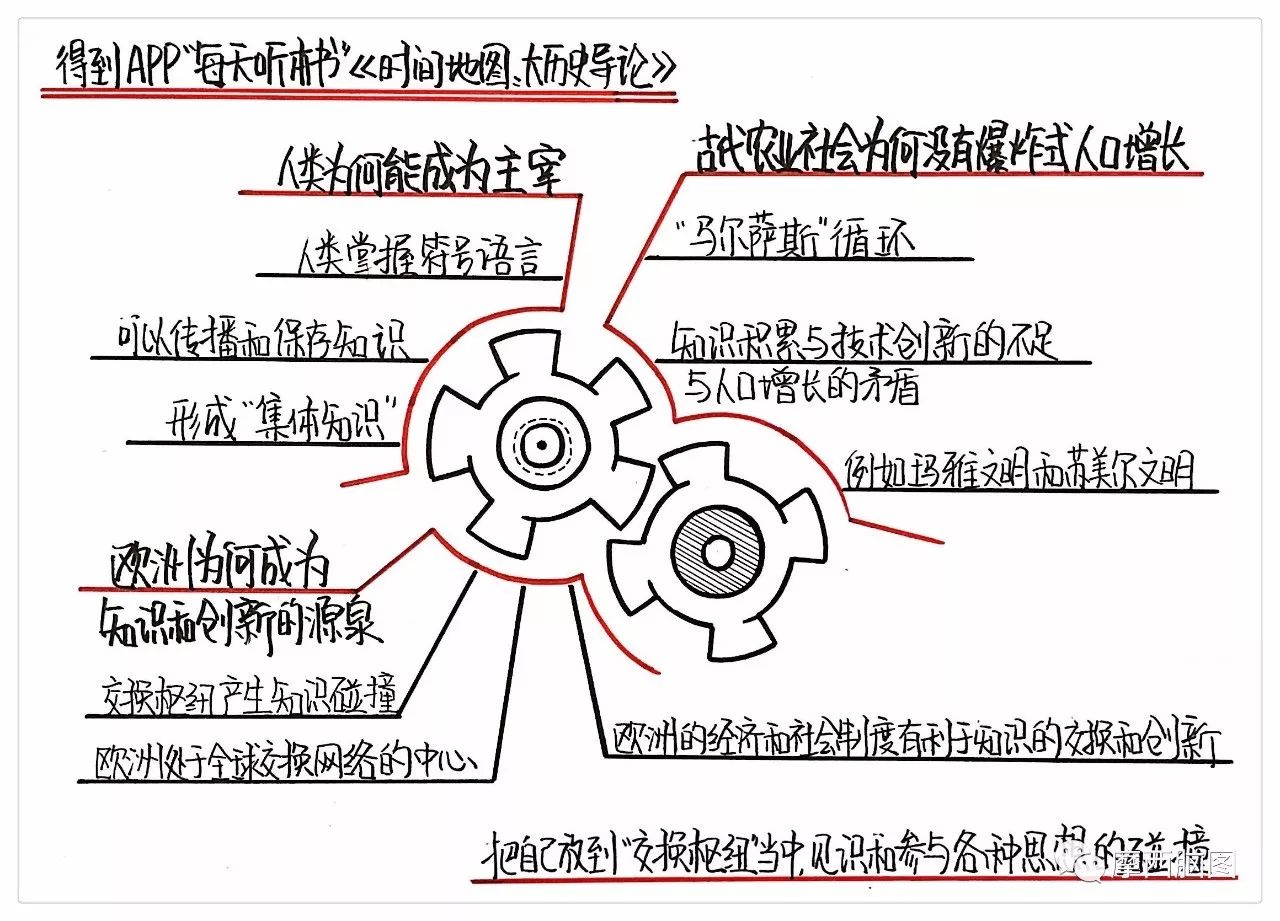 得到APP“每天听本书”《时间地图:大历史导论》
人类为何能成为主宰
人类掌握符号语言
可以传播和保存知识
形成“集体知识”
古代农业社会为何没有爆炸式人口增长
“马尔萨斯”循环
知识积累与技术创新的不足
与人口增长的矛盾
例如玛雅文明和苏美尔文明
欧洲为何成为
知识和创新的源泉
交换枢纽产生知识碰撞
欧洲处于全球交换网络的中心
欧洲的经济和社会制度有利于知识的交换和创新
把自己放到“交换枢纽”当中,见识和参与各种思想的碰撞